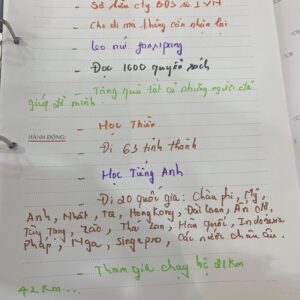 - Sở hữu cty BĐS số 1 VN
- Cho đi mà không cần nhận lại
- leo núi fanxipang
- Đọc 1000 quyển sách
- Tặng quà tất cả những người đã
giúp đỡ mình.
- Học Thiền
HÀNH ĐỘNG:
- Đi 63 tỉnh thành
- Học Tiếng Anh
- Đi 20 quốc gia: Châu phi, Mỹ,
Anh, Nhật, Hongkong, Đài Loan, Ấn độ,
Tây Tạng, Thái Lan, Hàn Quốc, Indonesia
Pháp, Nga, Singapo, các nước châu âu.
- Tham gia chạy bộ 21km
42km...